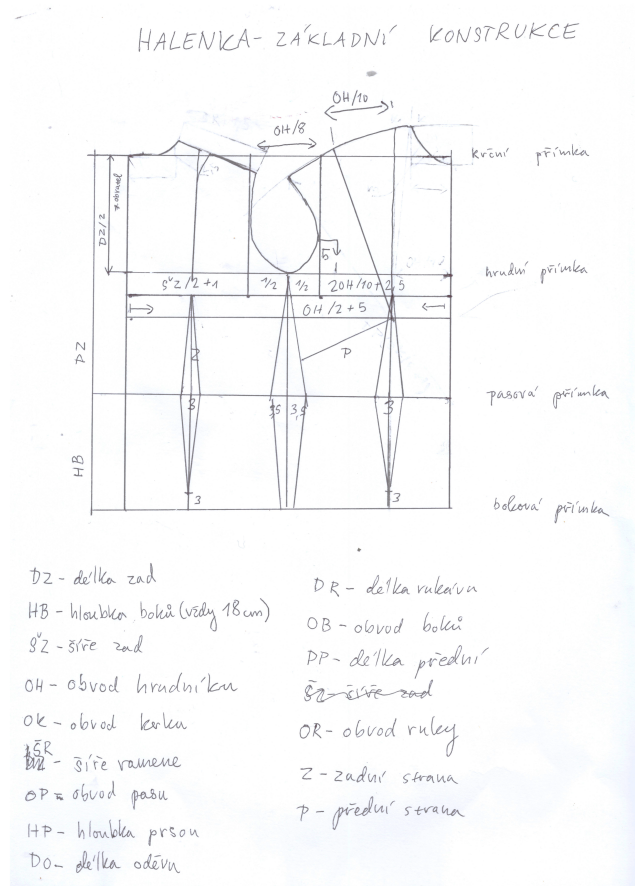 HALENKA - ZÁKLADNÍ KONSTRUKCE
OH/10
OH/8
krční přímka
DZ/2
5
hrudní přímka
ŠZ/2+1
1/2
1/2
2OH/10+2,5
OH/2+5
DZ
Z
P
pasová přímka
3
3,5
3,5
3
HB
3
3
boková přímka
DZ - délka zad
HB - hloubka boků (vždy 18cm)
ŠZ - šíře zad
OH - obvod hrudníku
OK - obvod krku
ŠR - šíře ramene
OP - obvod pasu
HP - hloubka prsou
DO - délka oděvu
DR - délka rukávu
OB - obvod boků
PP - délka přední
ŠZ - šíře zad
OR - obvod ruky
Z - zadní strana
P - přední strana